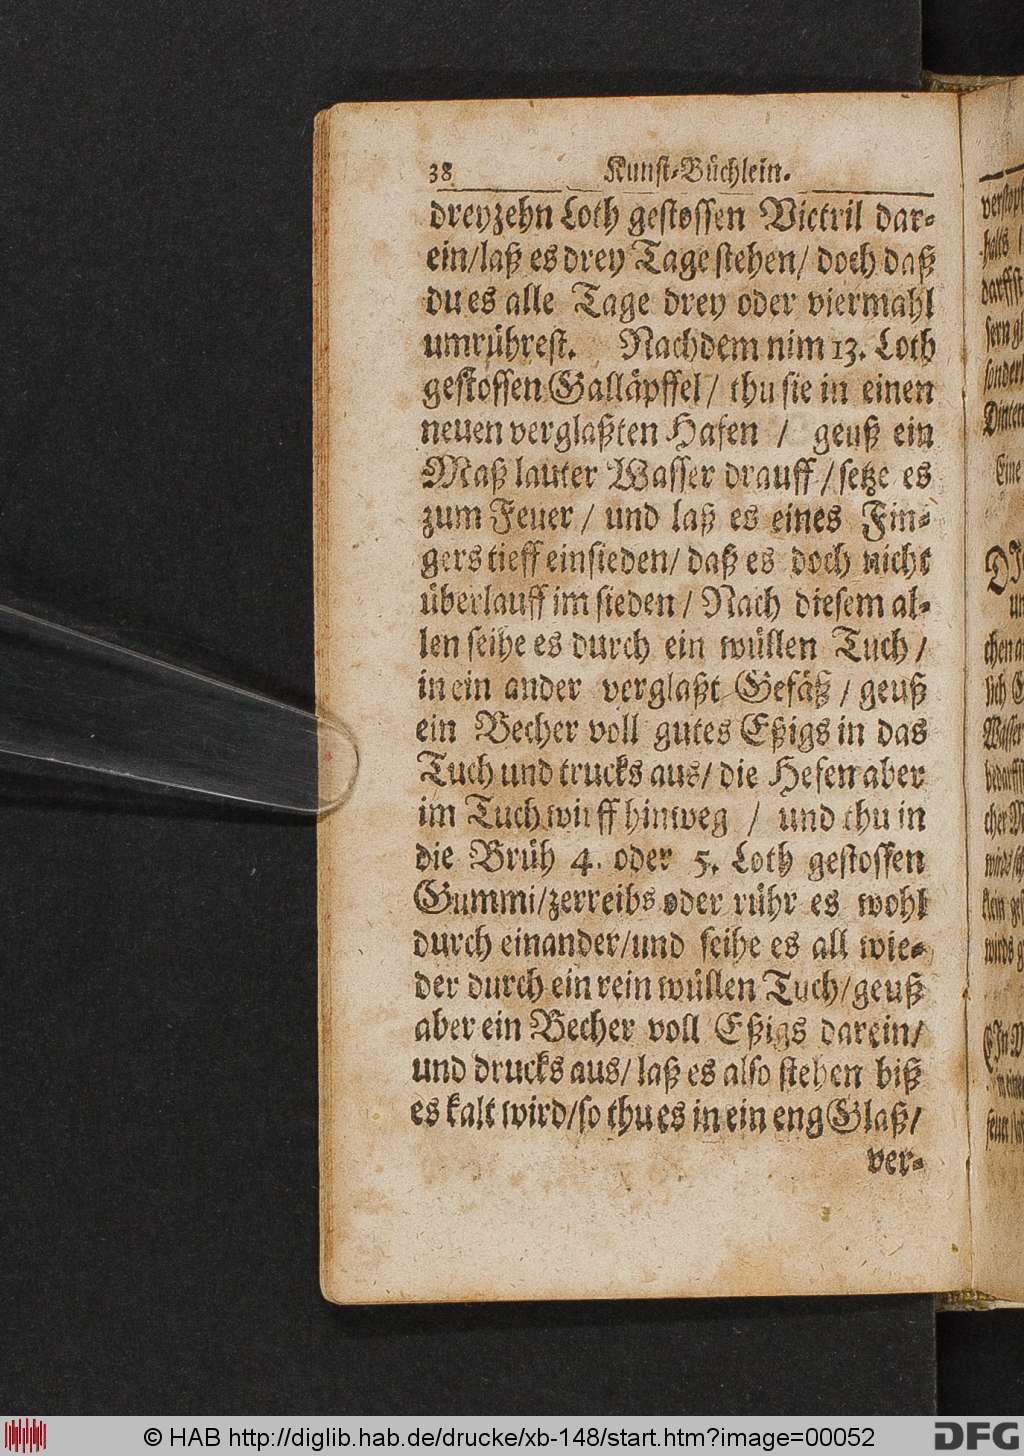 38 Kunst-Büchlein.
dreyzehn Loth gestossen Victril dar-
ein/laß es drey Tage stehen/ doch daß
du es alle Tage drey oder viermahl
umrührest. Nachdem nim 13. Loth
gestossen Galläpffel/ thu sie in einen
neuen verglaßten Hafen / geuß ein
Maß lauter Wasser drauff/setze es
zum Feuer/ und laß es eines Fin-
gers tieff einsieden/ daß es doch nicht
überlauff im sieden/ Nach diesem al-
len seihe es durch ein wüllen Tuch/
in ein ander verglaßt Gefäß/ geuß
ein Becher voll gutes Eßigs in das
Tuch und trucks aus/ die Hefen aber
im Tuch wirff hinweg / und thu in
die Brüh 4. oder 5. Loth gestossen
Gummi/zerreibs oder rühr es wohl
durch einander/und seihe es all wie-
der durch ein rein wüllen Tuch/geuß
aber ein Becher voll Eßigs darein/
und drucks aus/ laß es also stehen biß
es kalt wird/so thu es in ein eng Glaß/
ver-
verstopf
halts /
darffst
sern gl
sonderl
Dinten
Eine
un
chen a
sich
Wasser
bedarffst
cher
wird/
klein
wirds g
© HAB http://diglib.hab.de/drucke/xb-148/start.htm?image=00052
DFG